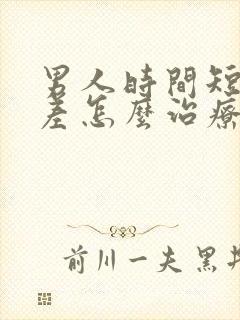 男人時間短
差怎麼治療
前川一夫黑